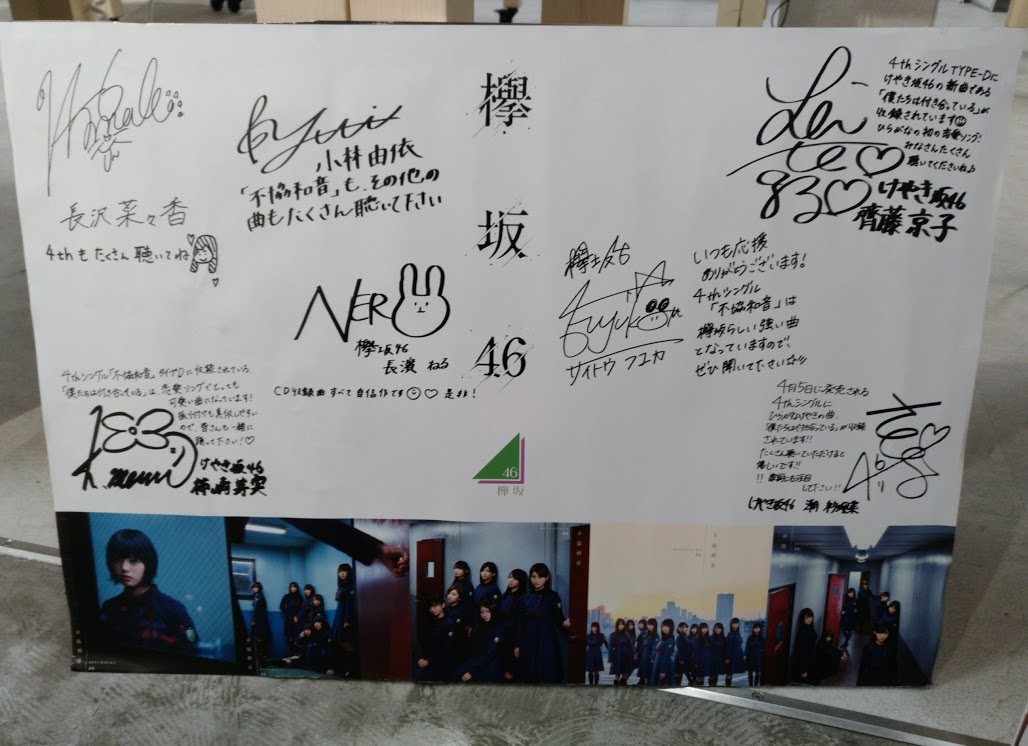 長沢菜々香
4thもたくさん聴いてね
小林由依
「不協和音」も、その他の
曲もたくさん聴いて下さい
NERU
欅坂46
長濱ねる
CD収録曲すべて自信作です 是非!
4thシングル「不協和音」タイプDに収録されている、
「僕たちは付き合っている」は、恋愛ソングでとっても
可愛い曲になっています!
振り付けも真似しやすい
ので、皆さんも一緒に
踊って下さい!♡
けやき坂46
欅
坂
46
46
欅坂
4thシングルTYPE-Dに
けやき坂46の新曲である
「僕たちは付き合っている」が
収録されています
ひらがなの初の恋愛ソング!
みなさんたくさん
聴いてくださいね♪
けやき坂46
齊藤京子
欅坂46
サイトウ フユカ
いつも応援
ありがとうございます!
4thシングル
「不協和音」は
欅坂らしい強い曲
となっていますので、
ぜひ聞いて下さい☆!!
4月5日に発売される
4thシングルに
ひらがなけやきの曲、
「僕たちは付き合っている」が収録
されています!!
たくさん聴いていただけると
嬉しいです!!
けやき坂46 潮 紗理菜
不協和音
不協和音
不協和音